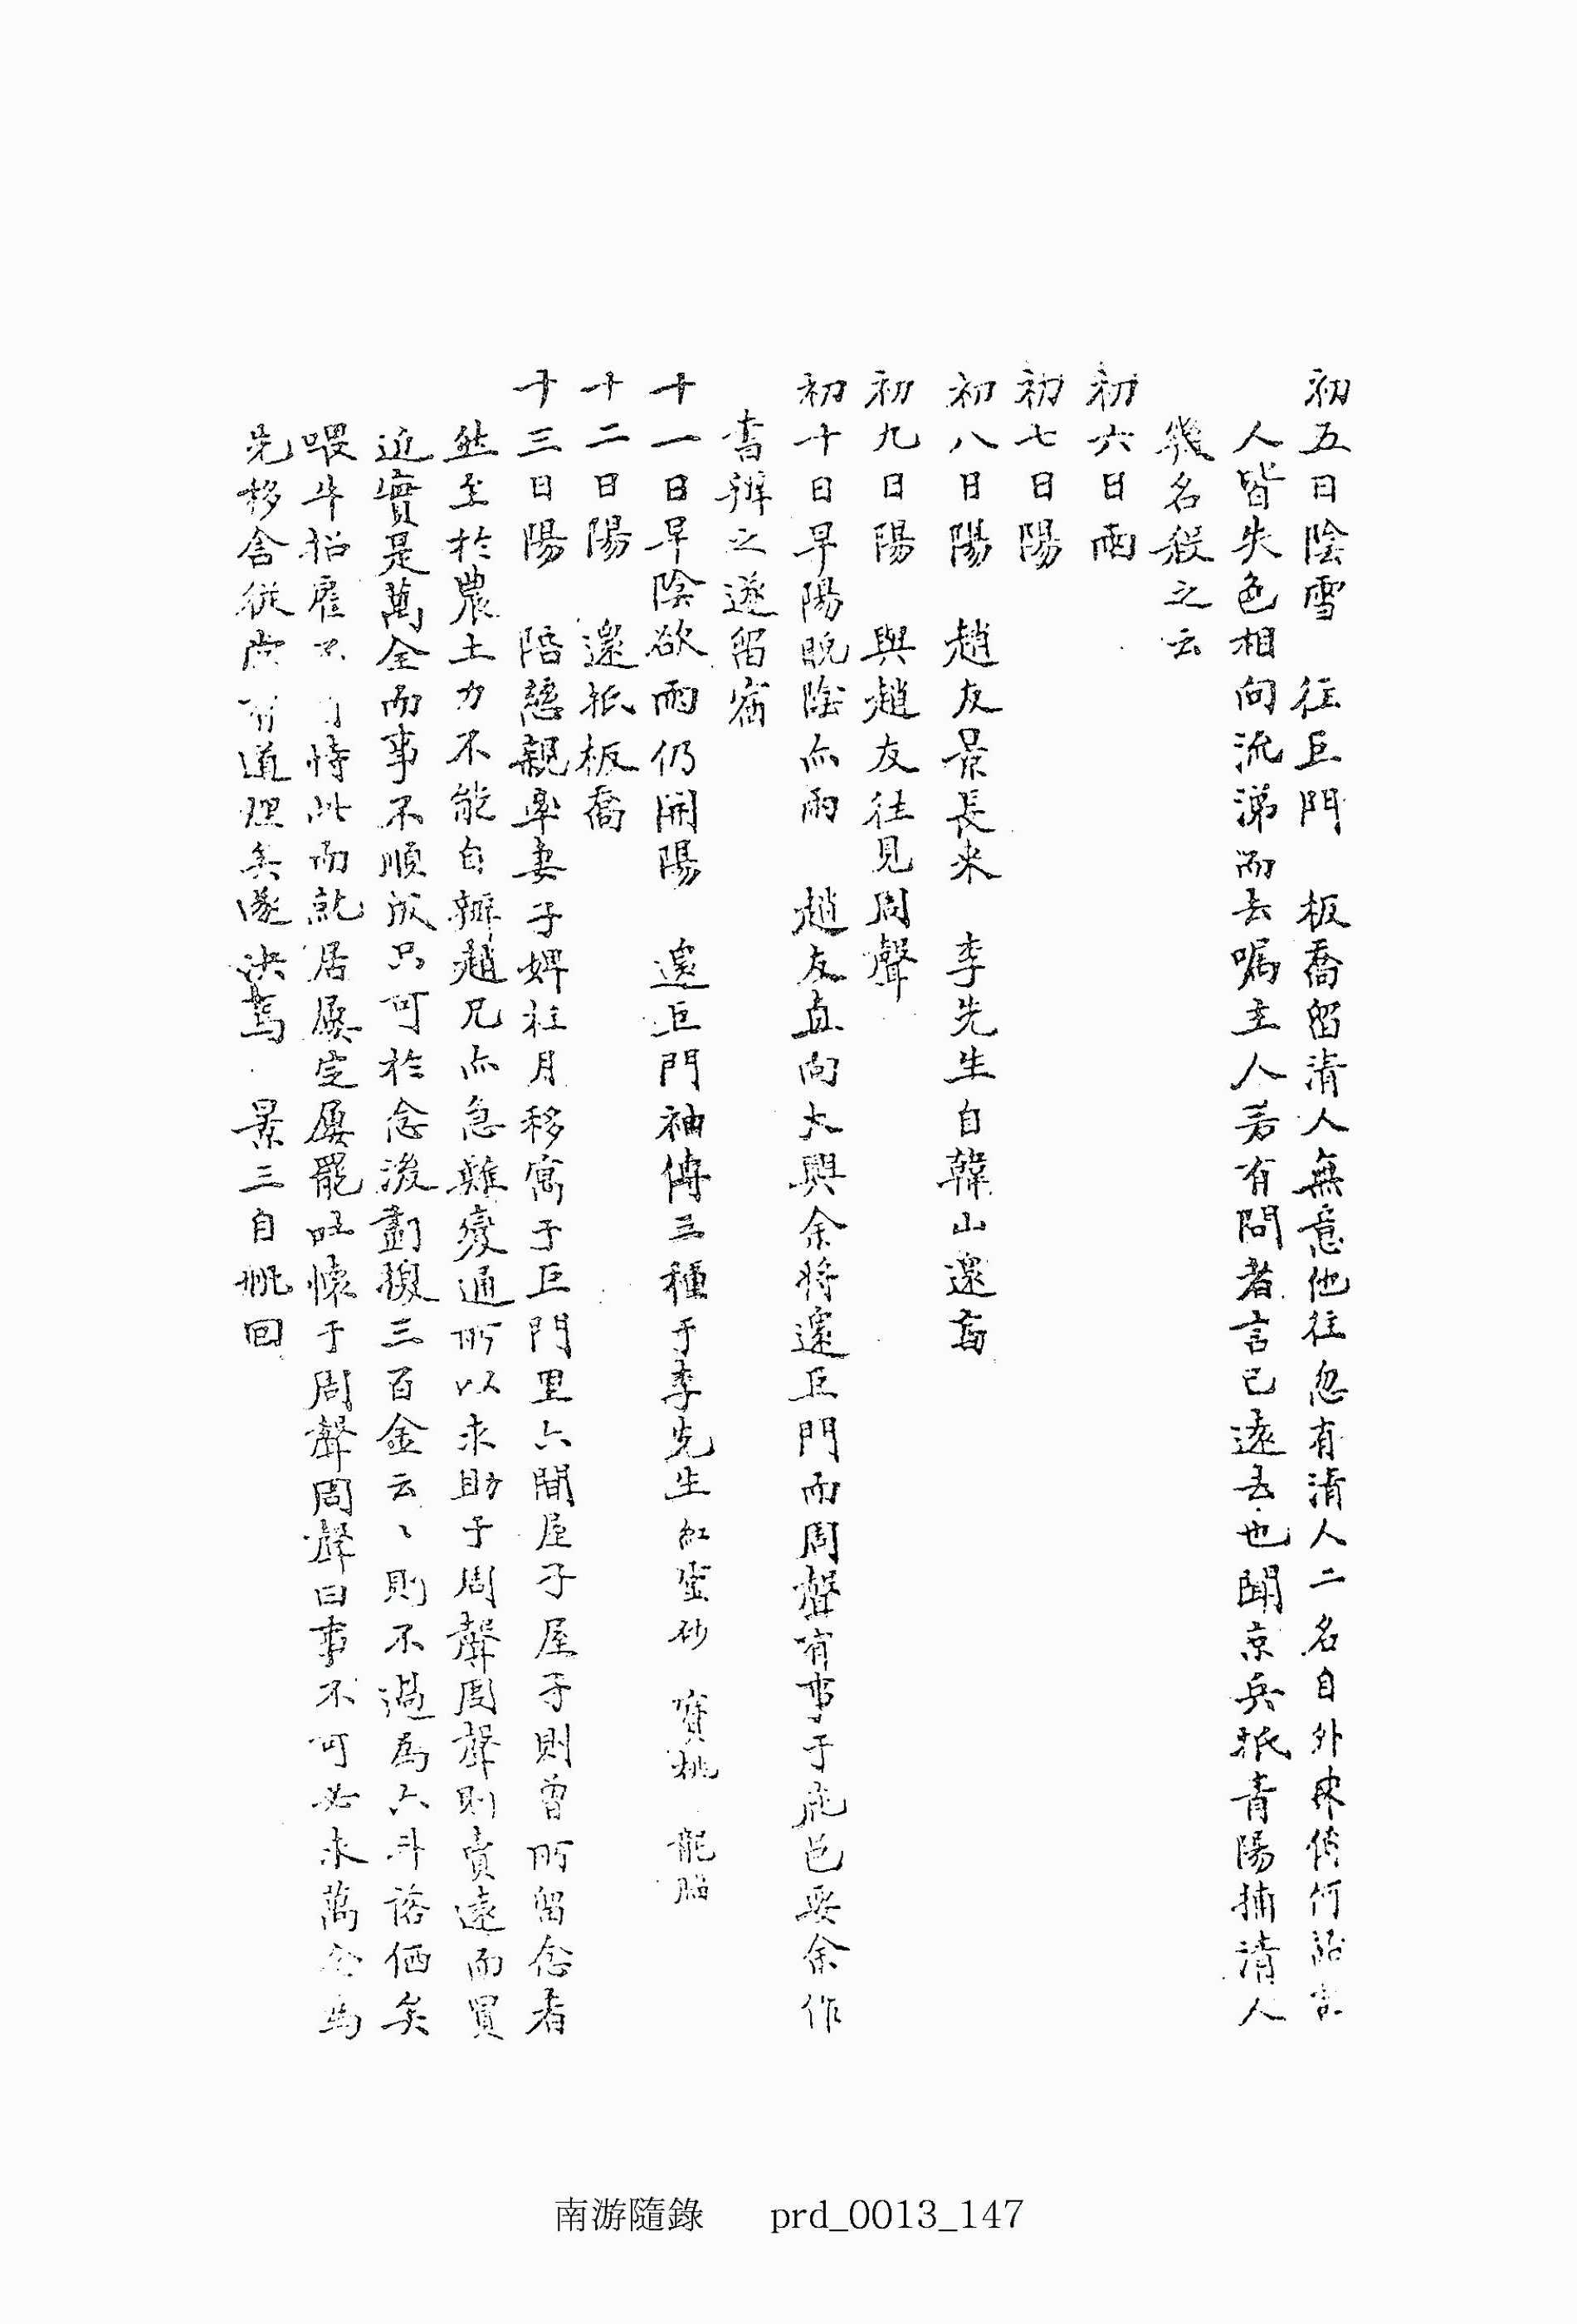 初五日陰雪 往巨門 板喬留清人無意他往忽有清人二名自外來傳何話書
人皆失色相向流涕而去嘱主人若有問者言已遠去也聞京兵抵青陽捕清人
幾名殺之云
初六日雨
初七日陽
初八日陽 趙友景長來 李先生自韓山還寓
初九日陽 與趙友往見周聲
初十日早陽晩陰亦雨 趙友直向大興余將還巨門而周聲有事于庇邑要余作
書辨之遂留宿
十一日早陰欲雨仍開陽 還巨門袖傳三種于李先生紅蜜砂 寶桃 龍腦
十二日陽 還抵板喬
十三日陽 陪慈親率妻子婢往月移寓于巨門里六間屋子屋子則曾所留念者
然至於農土力不能自辦趙兄亦急難變通所以求助于周聲周聲則賣遠而買
近實是萬全而事不順成只可於念後劃復三百金云〻則不過爲六斗落価矣
喂牛招雇 恃此而就居屢定屢罷吐懷于周聲周聲曰事不可必求萬全爲
先移舍從當有道理矣遂決焉 景三自桃回
南游隨錄 prd_0013_147